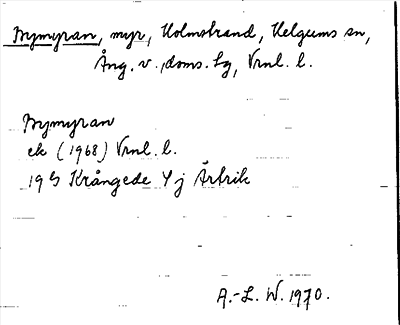 Bymyran, myr, Holmstrand, Helgums sn,
Ång. v., doms. hg, Vrnl. l.
Bymyran
ek (1968) Vrnl. l.
19 G Krångede 4 j Ärtrik
A.-L. W. 1970.